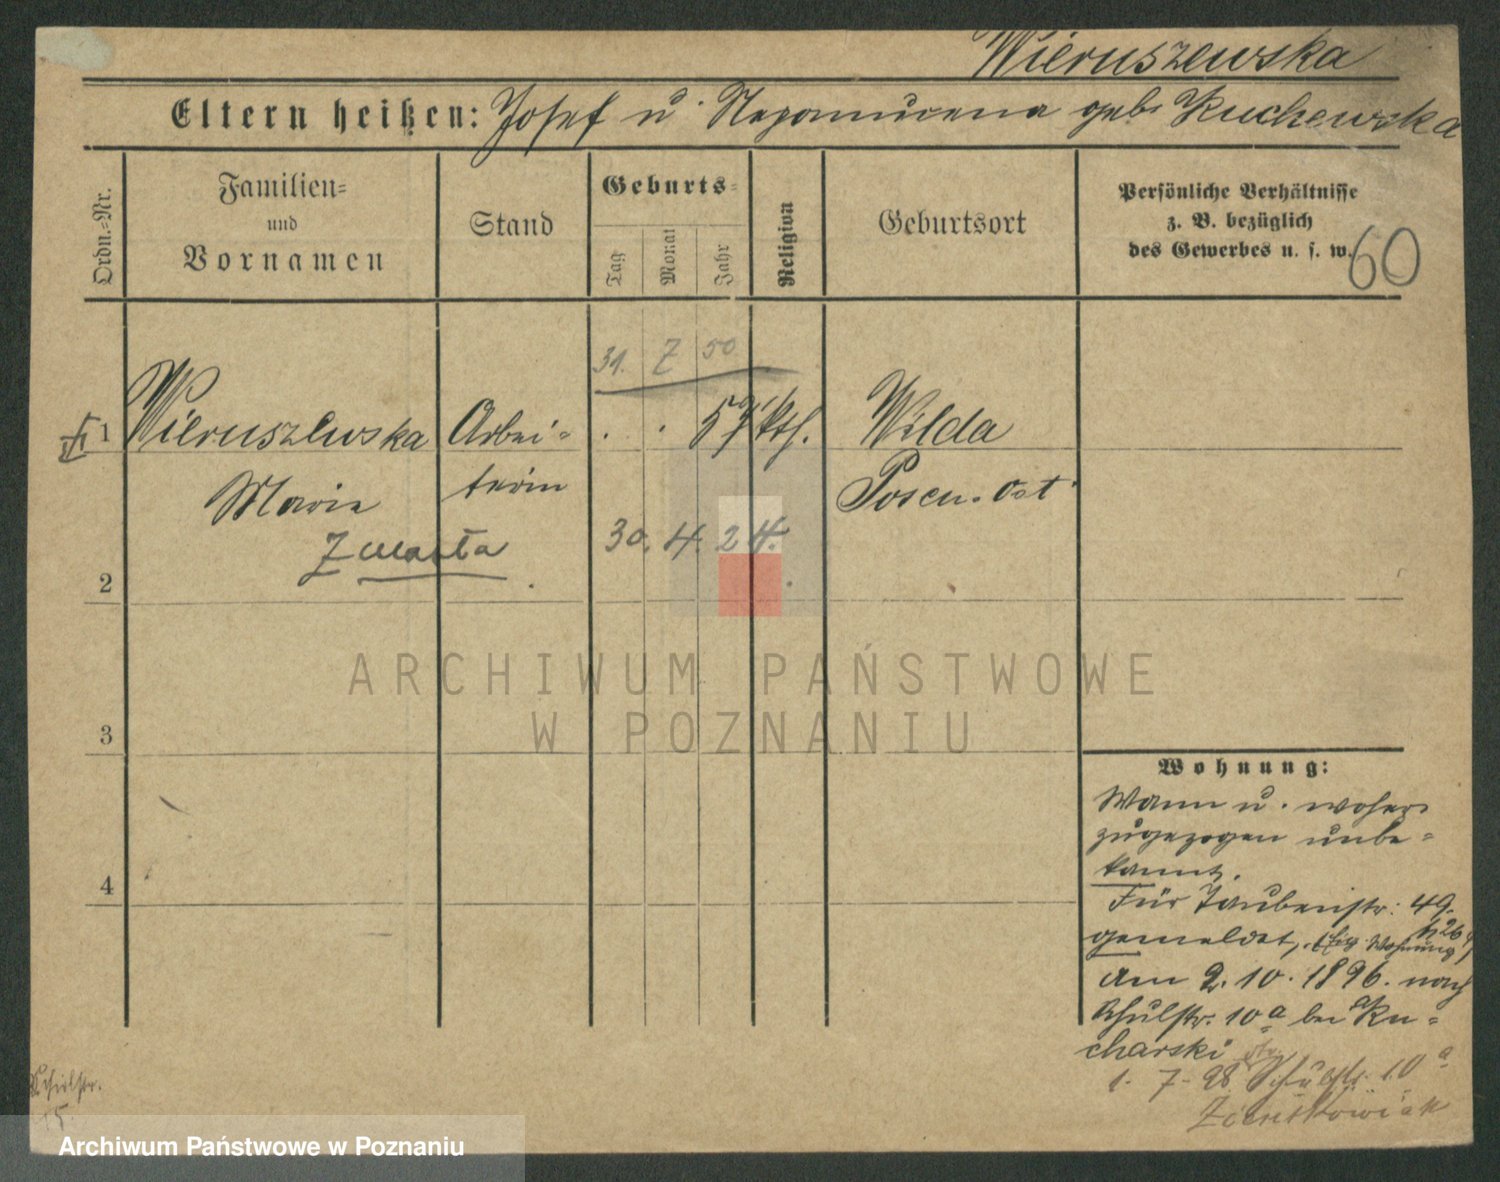 Wieruszewska
Eltern heißen: Josef u Nepomucena geb. Kuchewska
Ordn.=Nr.
Familien=
und
Vornamen
Stand
Geburts=
Tag
Monat
Jahr
Religion
Geburtsort
Persönliche Verhältnisse
z. B. bezüglich
des Gewerbes u. s. w.
60
31. 7 50
1 Wieruszewska Arbei= . . 57 kth. Wilda
Marie terin Posen-Ost
Zmarła 30. 4. 24.
2
3
4
Wohnung:
Wann u. woher
zugezogen unbe=
kannt.
Für Taubenstr: 49.
gemeldet,
Am 2. 10. 1896. nach
Schulstr. 10a bei Ku=
charski
1. 7. 98 Schulstr. 10a
Schulstr.
15.
ARCHIWUM PAŃSTWOWE
W POZNANIU
Archiwum Państwowe w Poznaniu